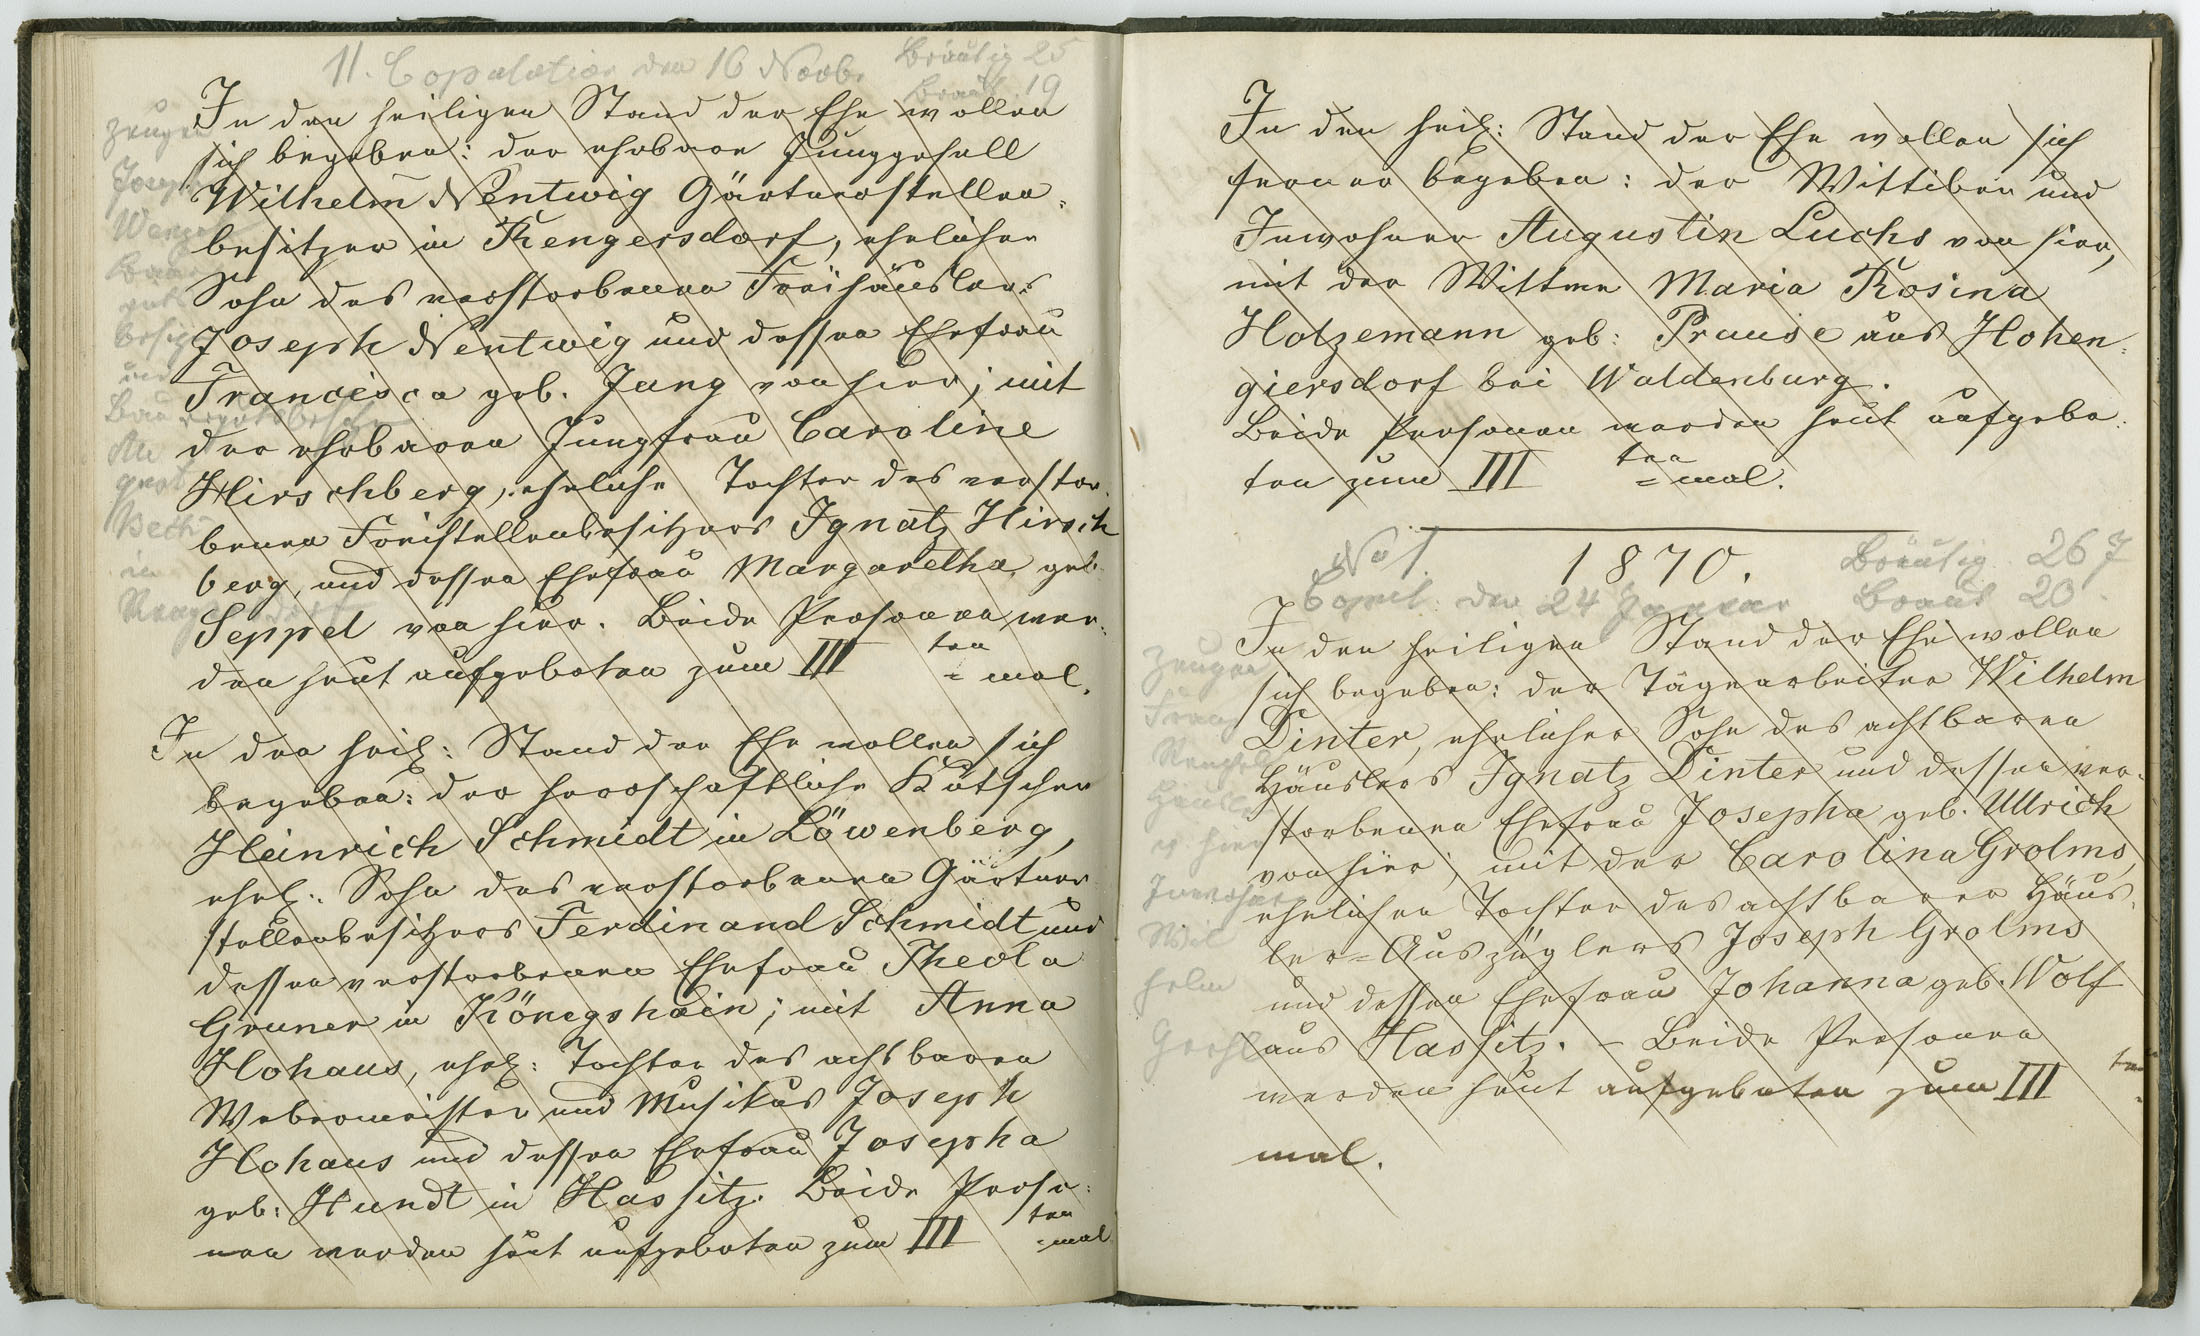 11. Copulation den 16 Novbr Bräutig 25
Braut 19
In den heiligen Stand der Ehe wollen
sich begeben: der ehrbare Junggesell
Wilhelm Nentwig Gärtnerstellen-
besitzer in Rengersdorf, ehelicher
Sohn des verstorbenen Freihäuslers
Joseph Nentwig und dessen Ehefrau
Francisca geb. Jung von hier; mit
der ehrbaren Jungfrau Caroline
Hirschberg, eheliche Tochter des verstor-
benen Freistellenbesitzers Ignatz Hirsch
berg, und dessen Ehefrau Margaretha geb.
Seppel von hier. Beide Personen wer-
den heut aufgeboten zum III ten
= mal.
Zeugen
Joseph
und
in
In den heil: Stand der Ehe wollen sich
begeben: der herrschaftliche Kutscher
Heinrich Schmidt in Löwenberg,
ehel: Sohn des verstorbenen Gärtner
stellenbesitzers Ferdinand Schmidt und
dessen verstorbenen Ehefrau Theola
Gruner in Königshain; mit Anna
Hohaus, ehel: Tochter des achtbaren
Webermeister und Musikus Joseph
Hohaus und dessen Ehefrau Josepha
geb: Hundt in Hassitz. Beide Perso-
nen werden heut aufgeboten zum III ten
=mal
In den heil: Stand der Ehe wollen sich
ferner begeben: der Wittiber und
Inwohner Augustin Luchs von hier,
mit der Wittwe Maria Rosina
Hotzemann geb: Prause aus Hohen-
giersdorf bei Waldenburg.
Beide Personen werden heut aufgebo-
ten zum III ten
= mal.
No 1. 1870. Bräutig. 26 J
Copul. den 24 Januar Braut 20.
In den heiligen Stand der Ehe wollen
sich begeben: der Tagearbeiter Wilhelm
Dinter, ehelicher Sohn des achtbaren
Häuslers Ignatz Dinter und dessen ver-
storbenen Ehefrau Josepha geb. Ullrich
von hier; mit der Carolina Grolms,
ehelichen Tochter des achtbaren Häus-
ler=Auszüglers Joseph Grolms
und dessen Ehefrau Johanna geb. Wolf
aus Hassitz. – Beide Personen
werden heut aufgeboten zum III ten
mal.
Zeugen
Franz
v. hier
Inwohner
Wil
helm